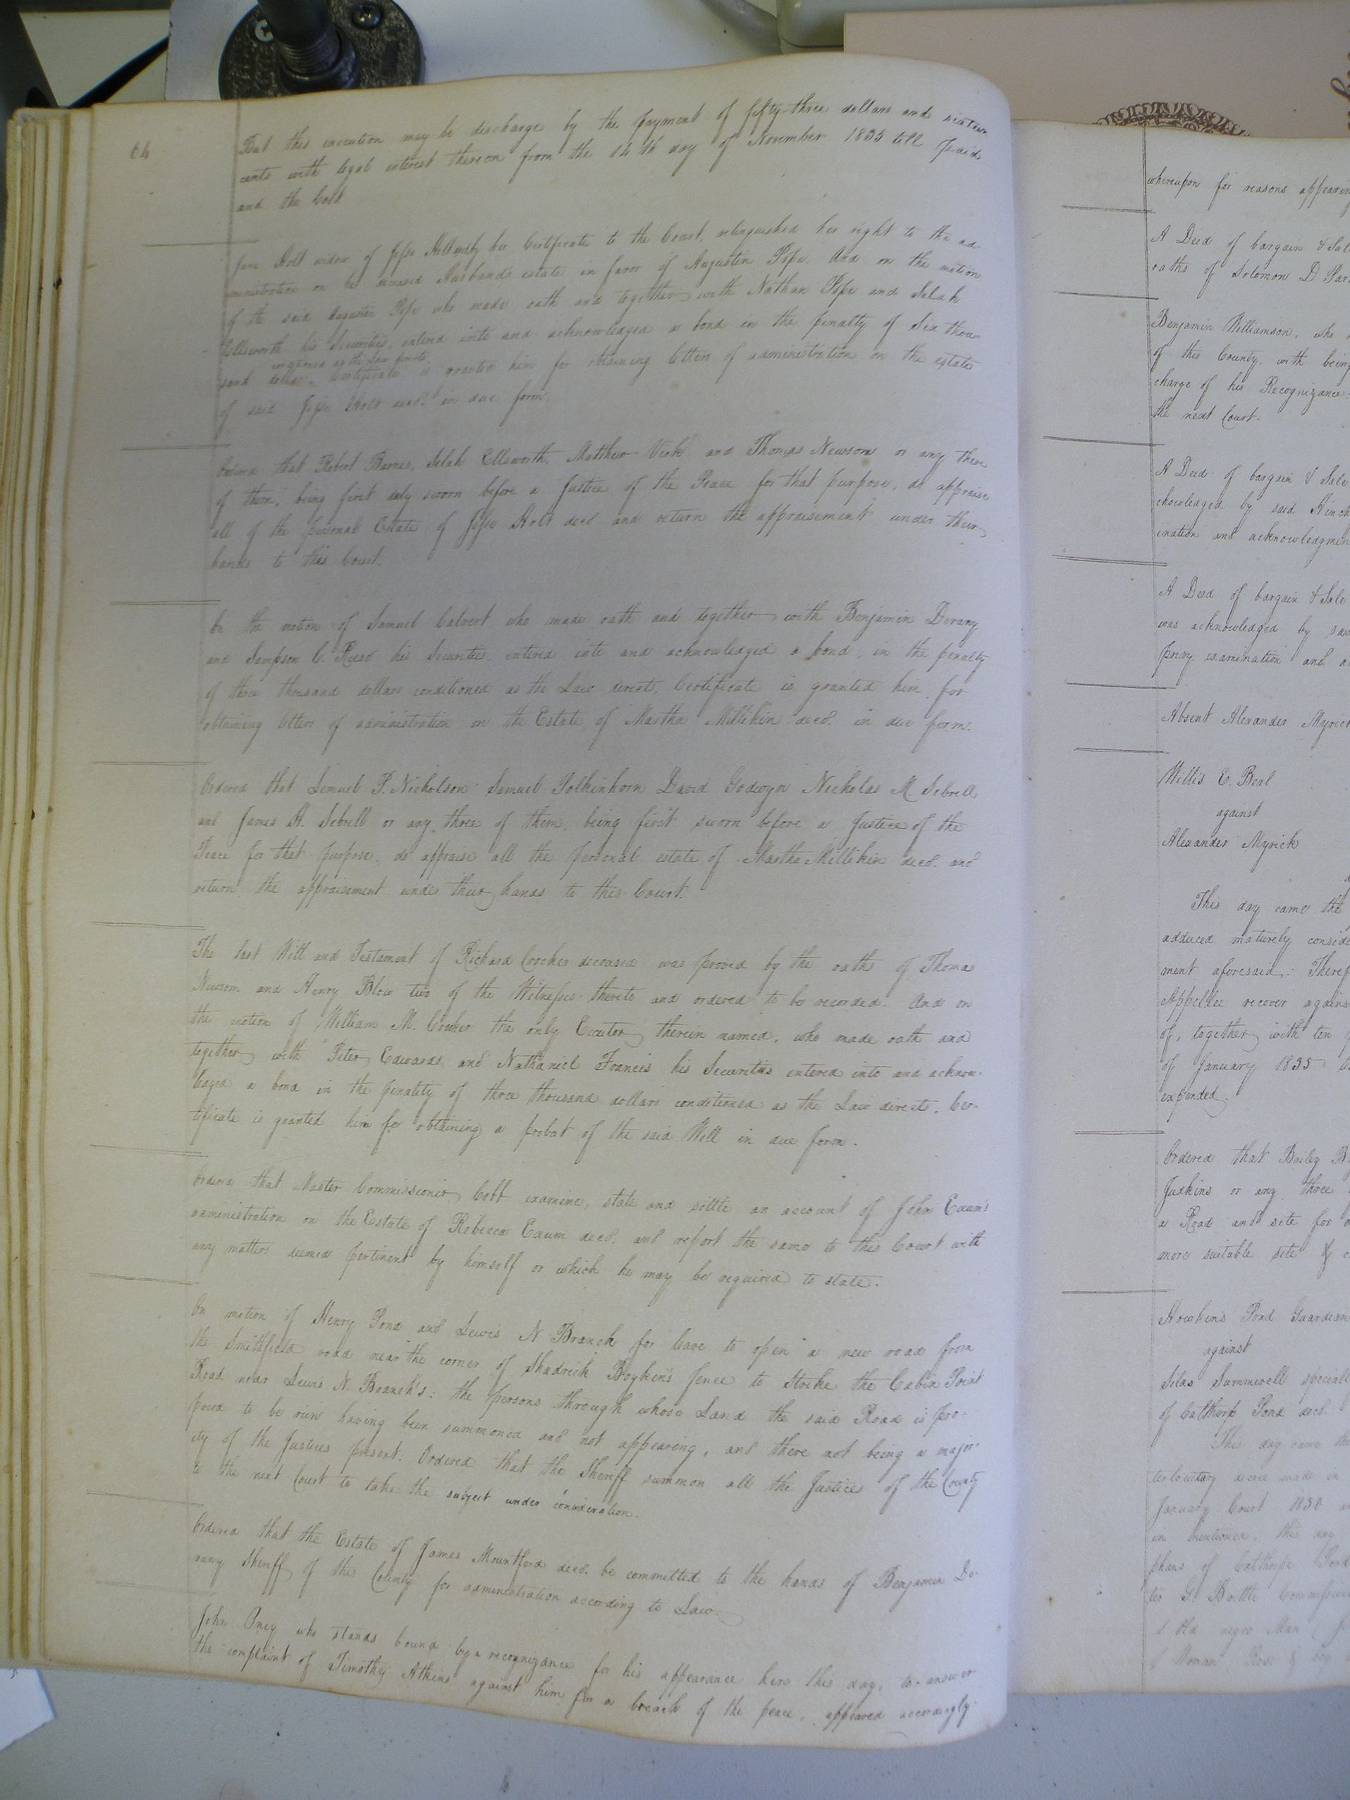 64
But this execution may be discharge by the payment of fifty-three dollars and sixteen
cents with legal interest thereon from the 14th day of November 1835 till paid
and the Costs
Jane Holt widow of Jesse Holt by her Certificate to the Court, relinquished her right to the ad
ministration on her deceased Husbands estate in favor of Augustin Pope. And on the motion
of the said Augustin Pope who made oath and together with Nathan Pope and Selah
Ellsworth his Securities, entered into and acknowledged a bond in the penalty of Six thou
conditioned as the Law directs,
sand dollars, Certificate is granted him for obtaining letters of administration on the estate
of said Jesse Holt decd. in due form.
Ordered that Robert Barnes, Selah Ellsworth, Matthew Vick and Thomas Newsom or any three
of them, being first duly sworn before a Justice of the Peace for that purpose, do appraise
all of the personal Estate of Jesse Holt decd. and return the appraisement under their
hands to this Court.
On the motion of Samuel Calvert who made oath and together with Benjamin Devany
and Sampson C. Reese his Securities, entered into and acknowledged a bond, in the penalty
of three thousand dollars conditioned as the Law directs, Certificate is granted him for
obtaining letters of administration on the Estate of Martha Millikin decd. in due form.
Ordered that Lemuel P. Nicholson Samuel Polkinhorn David Godwyn Nicholas M Sebrell
and James H. Sebrell or any three of them, being first sworn before a Justice of the
Peace for that purpose, do appraise all the personal estate of Martha Millikin decd. and
return the appraisement under their hands to this Court.
The last Will and Testament of Richard Crocker deceased was proved by the oaths of Thomas
Newsom and Henry Blow two of the Witnesses thereto and ordered to be recorded. And on
the motion of William M. Crocker the only Executor therein named, who made oath and
together with Peter Edwards and Nathaniel Francis his Securities entered into and acknow-
ledged a bond in the penalty of three thousand dollars conditioned as the Law directs, Cer-
tificate is granted him for obtaining a probat of the said Will in due form.
Ordered that Master Commissioner Cobb examine, state and settle an account of John Exum's
administration on the Estate of Rebecca Exum decd. and report the same to this Court with
any matters deemed pertinent by himself or which he may be required to state.
On motion of Henry Pond and Lewis N Branch for leave to open a new road from
the Smithfield road near the corner of Shadrick Boykin's fence to Strike the Cabin Point
Road near Lewis N. Branch's: the persons through whose Land the said Road is pro-
posed to be run having been summoned and not appearing, and there not being a major-
ity of the Justices present. Ordered that the Sheriff summon all the Justices of the County
to the next Court to take the subject under consideration.
Ordered that the Estate of James Mountford decd. be committed to the hands of Benjamin De-
vany Sheriff of this County for administration according to Law.
John Oney who stands bound by a recognizance for his appearance here this day, to answer
the complaint of Timothy Atkins against him for a breach of the peace, appeared accordingly
whereupon for reasons appearing
A Deed of bargain & Sale
oaths of Solomon D
Benjamin Williamson, who
of this County, with being
charge of his Recognizance
the next Court.
A Deed of bargain & Sale
chowledged by said
ination and acknowledgmen
A Deed of bargain & Sale
was acknowledged by
privy examination and
Absent Alexander Myrick
Willis E. Beal
against
Alexander Myrick
This day came the
adduced maturely conside
ment aforesaid: Theref
Appellee recover against
of, together with ten
of January 1835
expended.
Ordered that Bailey
Judkins or any three
a Road and site for
more suitable site &
Hawkins Pond Guardian
against
Silas Summerell speciall
of Calthorp Pond decd.
This day came the
terlocutory decree made in
January Court 1830
in mentioned, the
phans of Calthorpe Pond
Battle Commissione
negro Man
Woman Rose &